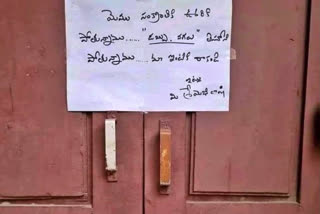 మేము సంక్రాంతికి ఊరికి
పోతున్నాము...... "డబ్బు, నగలు"
పోతున్నాము..... మా ఇంటికి రాకండి
ఇట్లు
మీ శ్రేయోభిలాషి